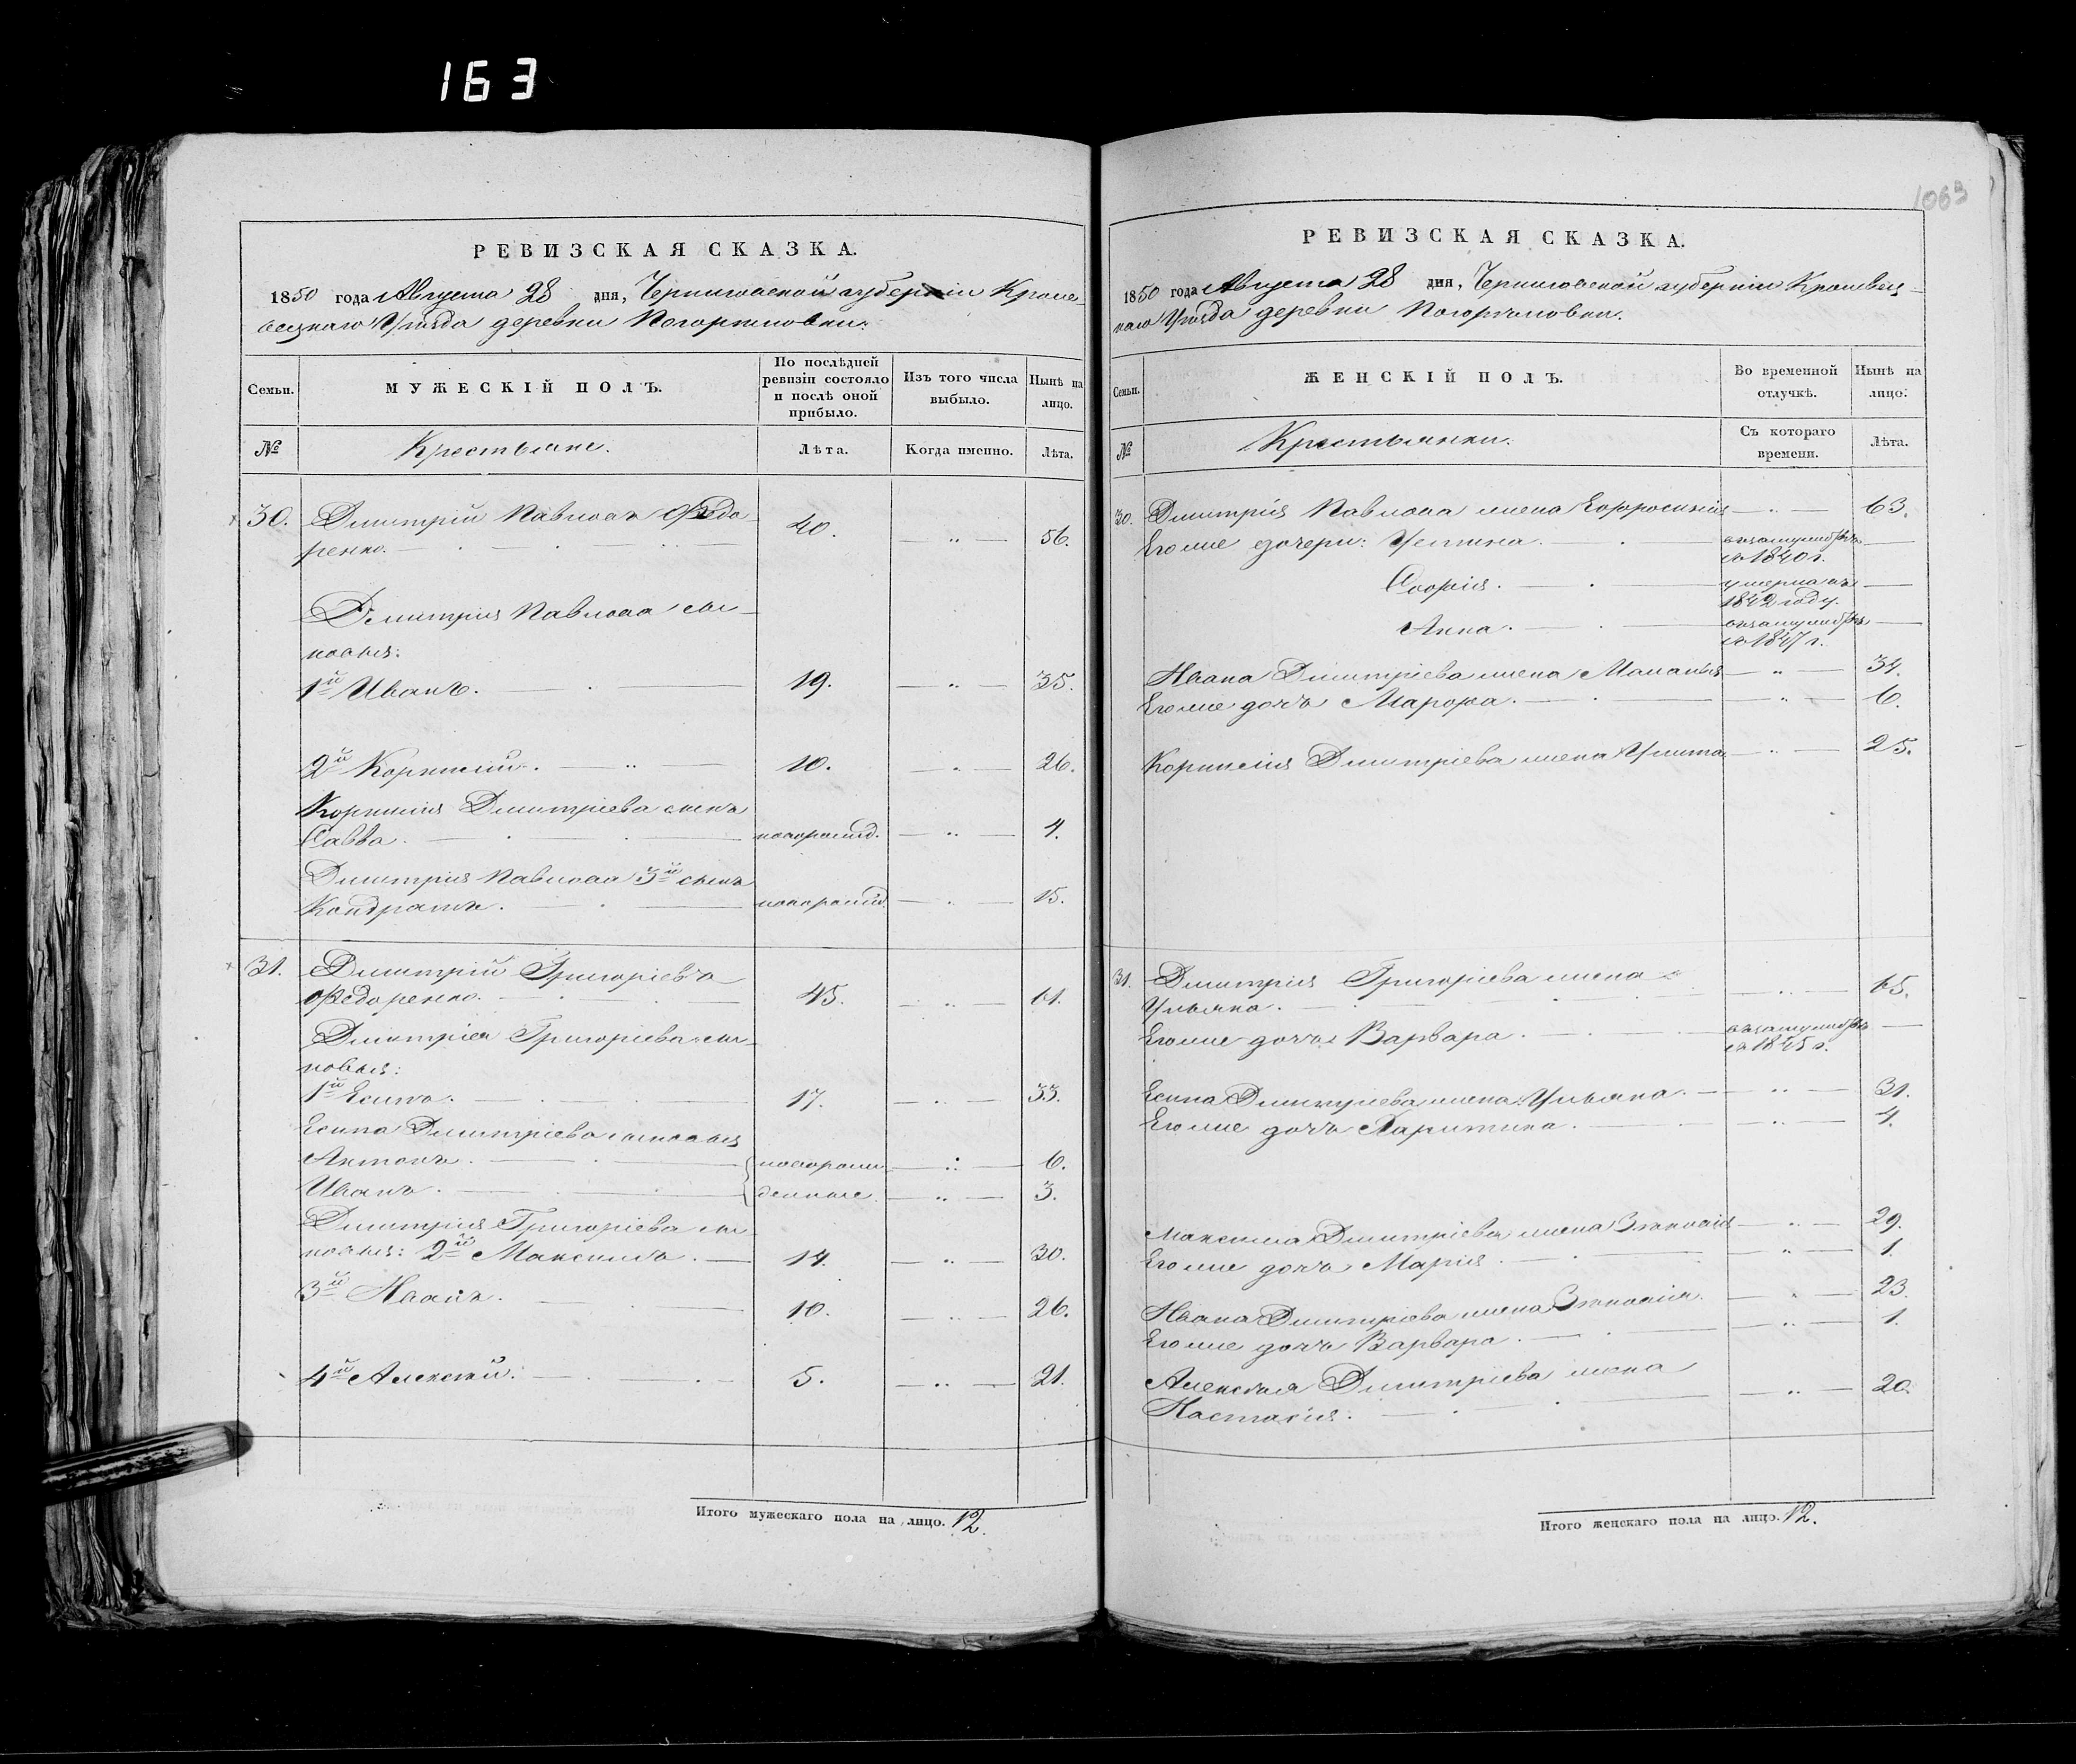 163
РЕВИЗСКАЯ СКАЗКА.
1850 года Августа 28 дня, Черниговской губерніи Кроле-
вецкаго Уѣзда деревни Погорѣловки.
Семьи. МУЖЕСКІЙ ПОЛЪ. По послѣдней ревизіи состояло и послѣ оной прибыло. Изъ того числа выбыло. Нынѣ на лицо.
№ Крестьяне. Лѣта. Когда именно. Лѣта.
30. Дмитрій Павловъ Ѳедо-
ренко. 40. " 56.
Дмитрія Павлова сы-
новья:
1й Иванъ. 19. " 35.
2й Корнилій. " 10. " 26.
Корнилія Дмитріева сынъ
Савва. новорожд. " 4.
Дмитрія Павлова 3й сынъ
Кондратъ. новорожд. " 15.
31. Дмитрій Григоріевъ
Ѳедоренко. 45. " 61.
Дмитрія Григоріева сы-
новья:
1й Есипъ. 17. " 33.
Есипа Дмитріева сыновья
Антонъ. новорож- " 6.
Иванъ. денные. " 3.
Дмитрія Григоріева сы-
новья: 2й Максимъ. 14. " 30.
3й Иванъ. 10. " 26.
4й Алексѣй. 5. " 21.
Итого мужескаго пола на лицо. 12.
1063
РЕВИЗСКАЯ СКАЗКА.
1850 года Августа 28 дня, Черниговской губерніи Кролевец-
каго Уѣзда деревни Погорѣловки.
Семьи. ЖЕНСКІЙ ПОЛЪ. Во временной отлучкѣ. Нынѣ на лицо.
№ Крестьянки. Съ котораго времени. Лѣта.
30. Дмитрія Павлова жена Евфросинія " 63.
Его же дочери: Устина. въ замужествѣ
съ 1840 г.
Софія. умерла въ
1842 году.
Анна. въ замужествѣ
съ 1847 г.
Ивана Дмитріева жена Маланья " 34.
Его же дочь Марфа. " 6.
Корнилія Дмитріева жена Улита " 25.
31. Дмитрія Григоріева жена
Ульяна. " 65.
Его же дочь Варвара. въ замужествѣ
съ 1845 г.
Есипа Дмитріева жена Ульяна. " 31.
Его же дочь Харитина. " 4.
Максима Дмитріева жена Зиновія " 29.
Его же дочь Марія. " 1.
Ивана Дмитріева жена Зиновія. " 23.
Его же дочь Варвара. " 1.
Алексѣя Дмитріева жена
Настасія. " 20.
Итого женскаго пола на лицо. 12.